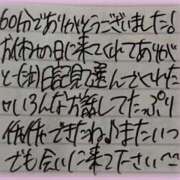 60分でありがとうございました!
お休みの日に来てくれてありが
とっ 見て選んでくれた
いろんなお話してたっぷり
できたね♪またいつ
でも会いに来て下さい